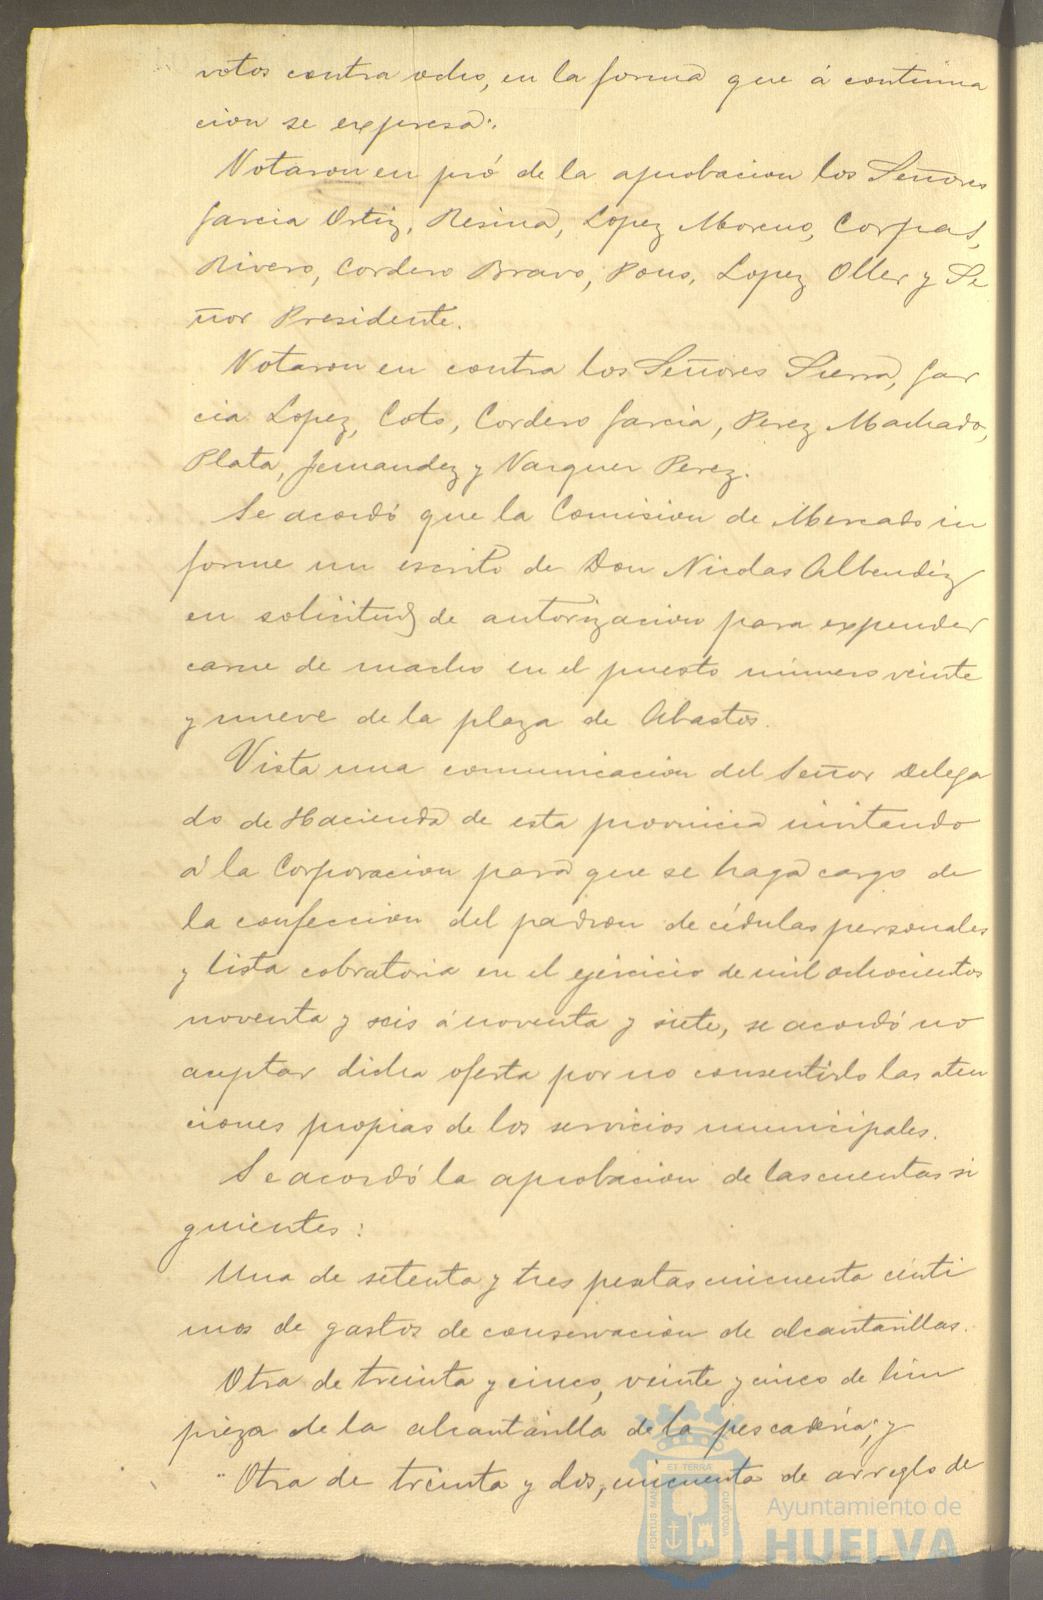 votos contra ocho, en la forma que á continua
cion se expresa:
Votaron en pró de la aprobacion los Señores
Garcia Ortiz, Resina, Lopez Moreno, Corpas,
Rivero, Cordero Bravo, Pons, Lopez Oller y Se
ñor Presidente.
Votaron en contra los Señores Sierra, Gar
cia Lopez, Coto, Cordero Garcia, Perez Machado,
Plata, Fernandez y Vazquez Perez.
Se acordó que la Comision de Mercado in
forme un escrito de Don Nicolas Albendiz
en solicitud de autorizacion para expender
carne de macho en el puesto número veinte
y nueve de la plaza de Abastos.
Vista una comunicacion del Señor Delega
do de Hacienda de esta provincia invitando
á la Corporacion para que se haga cargo de
la confeccion del padron de cédulas personales
y lista cobratoria en el ejercicio de mil ochocientos
noventa y seis á noventa y siete, se acordó no
aceptar dicha oferta por no consentirlo las aten
ciones propias de los servicios municipales.
Se acordó la aprobacion de las cuentas si
guientes:
Una de setenta y tres pesetas cincuenta cénti
mos de gastos de conservacion de alcantarillas.
Otra de treinta y cinco, veinte y cinco de lim
pieza de la alcantarilla de la pescadería; y
Otra de treinta y dos, cincuenta de arreglo de
PORTUS MARIS ET TERRA CUSTODIA
Ayuntamiento de
HUELVA